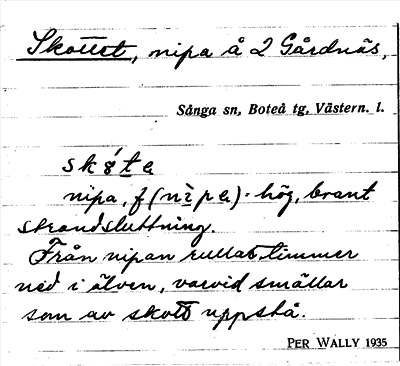 Skottet, nipa å 2 Gårdnäs,
Sånga sn, Boteå tg, Västern. l.
nipa, f (nìpa)· hög, brant
strandsluttning.
Från nipan rullas timmer
ned i älven, varvid smällar
som av skott uppstå.
PER WALLY 1935